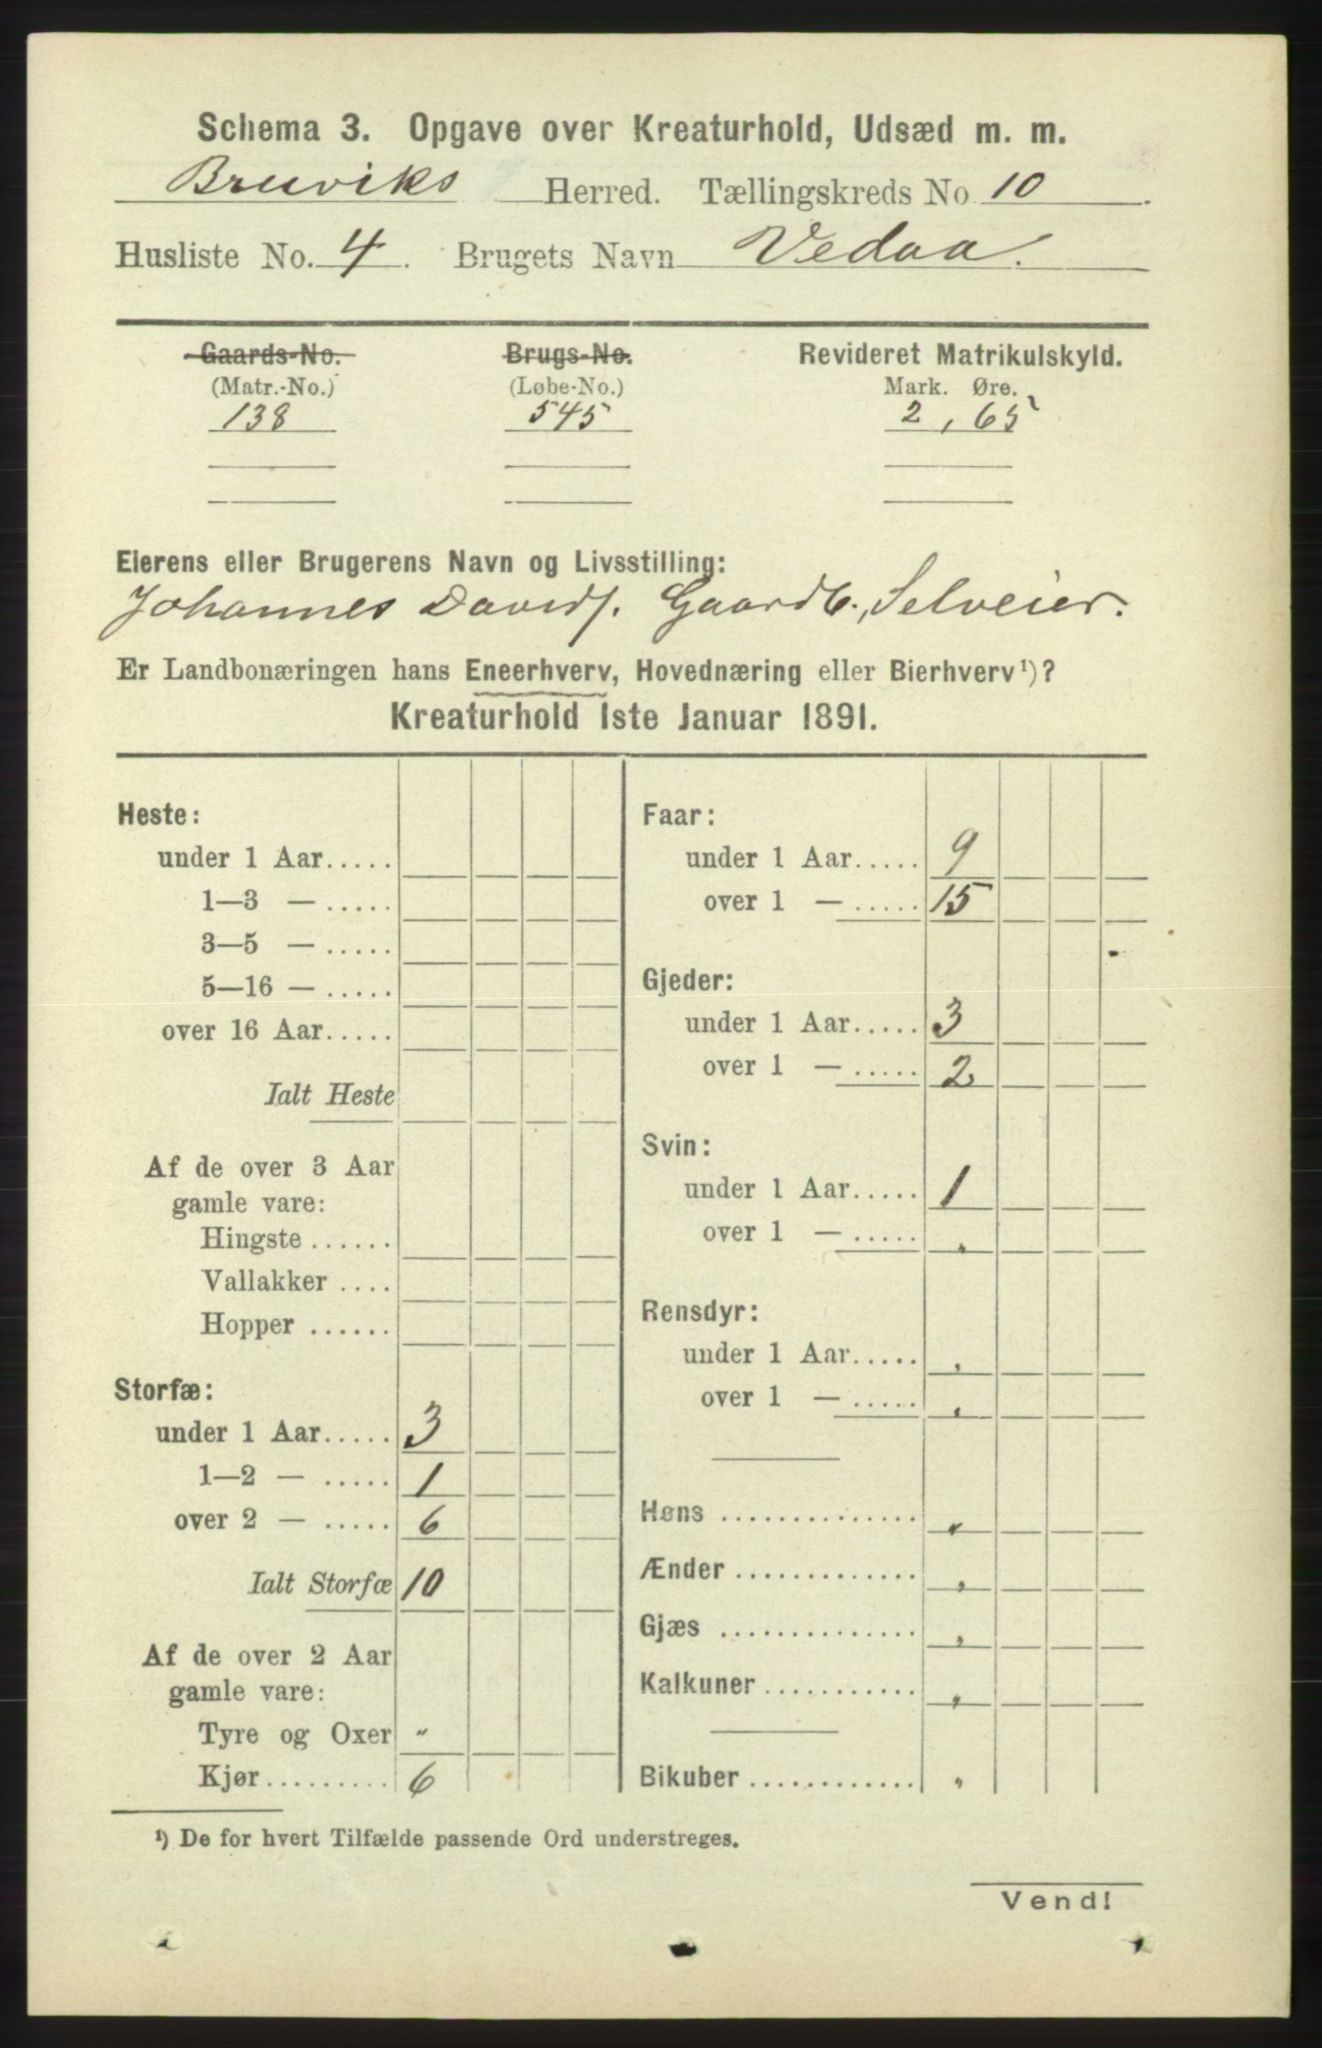 Schema 3. Opgave over Kreaturhold, Udsæd m. m.
Bruviks Herred. Tællingskreds No. 10.
Husliste No. 4. Brugets Navn Vedaa.
Gaards-No. Brugs-No. Revideret Matrikulskyld.
(Matr.-No.) (Løbe-No.) Mark. Øre.
138 545 2, 65
Eierens eller Brugerens Navn og Livsstilling:
Johannes Davids. Gaardb., Selveier.
Er Landbonæringen hans Eneerhverv, Hovednæring eller Bierhverv¹)?
Kreaturhold 1ste Januar 1891.
Heste:
under 1 Aar.....
1—3 — .....
3—5 — .....
5—16 — .....
over 16 Aar.....
Ialt Heste
Af de over 3 Aar
gamle vare:
Hingste ......
Vallakker ....
Hopper ......
Storfæ:
under 1 Aar..... 3
1—2 — ..... 1
over 2 — ..... 6
Ialt Storfæ 10
Af de over 2 Aar
gamle vare:
Tyre og Oxer "
Kjør......... 6
Faar:
under 1 Aar..... 9
over 1 — ..... 15
Gjeder:
under 1 Aar..... 3
over 1 — ..... 2
Svin:
under 1 Aar..... 1
over 1 — ..... "
Rensdyr:
under 1 Aar..... "
over 1 — ..... "
Høns .............. "
Ænder ............. "
Gjæs .............. "
Kalkuner ........... "
Bikuber ............ "
¹) De for hvert Tilfælde passende Ord understreges.
Vend!